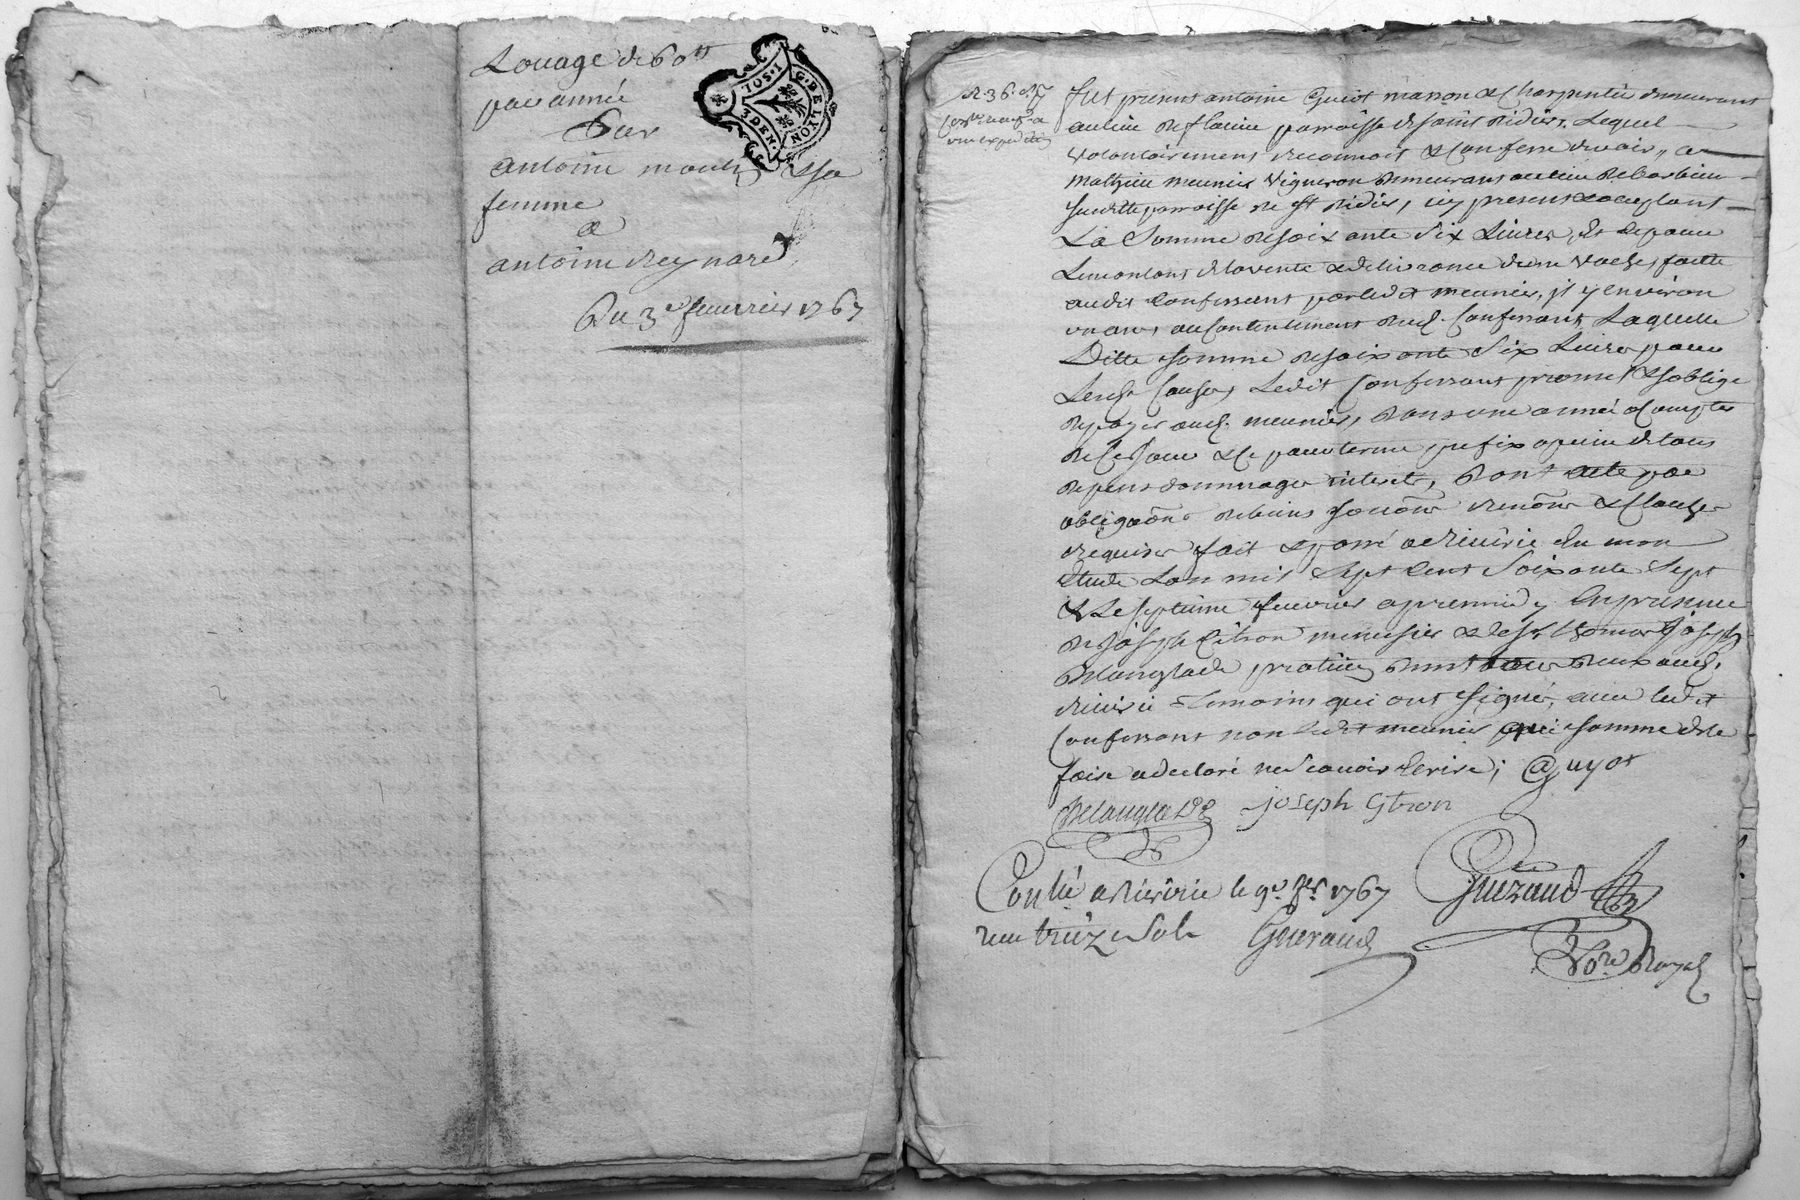 Louage de 60 tt
par année
Par
antoine moulin & sa
femme
a
antoine Reynard
Du 3e feuvrier 1767
G. DE LYON
2 DEN.
fut present antoine Guiot masson & Charpentier demeurant
au lieu de flavin parroisse de saint didier, Lequel
volontairement reconnoit & Confesse devoir, a
mathieu meunier vigneron demeurant au lieu de barbieu
susditte parroisse de st didier, icy present & acceptant
La Somme de soixante Six Livres, Et ce pour
Le montant de la vente & delivrance d'une vache, faitte
audit Confessant par ledit meunier, il y environ
un an, au Contentement dud. Confessant, Laquelle
Ditte somme de soixante Six Livres pour
Lesd. Causes, Ledit Confessant promet & s'oblige
de payer aud. meunier, Dans une année a Compter
de Ce jour & Ce pour terme prefix a peine de tous
depens dommages interets, Dont acte par
obligaôns de biens soumôns renonôns & Clauses
requises fait & passé a Riverie en mon
Etude L'an mil Sept Cent Soixante Sept
& Le septieme feuvrier apres midy En presence
de joseph Citron menusier & de sr thomas joseph
Delanglade praticien demt tous deux aud.
Riverie temoins qui ont signé, avec ledit
Confessant non ledit meunier qui sommé de le
faire a declaré ne Scavoir Ecrire; a Guyot
Delanglade joseph Gtron
Conllé a Riverie le 9e fer 1767
reçu treize sols Gueraud
Gueraud
Nore Royal